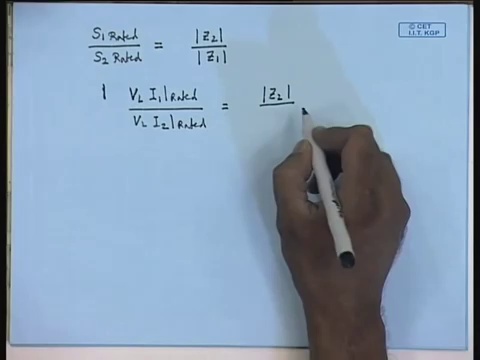 © CET
I.I.T. KGP
S₁ Rated / S₂ Rated = |Z₂| / |Z₁|
| V_L I₁|Rated / V_L I₂|Rated = |Z₂| /